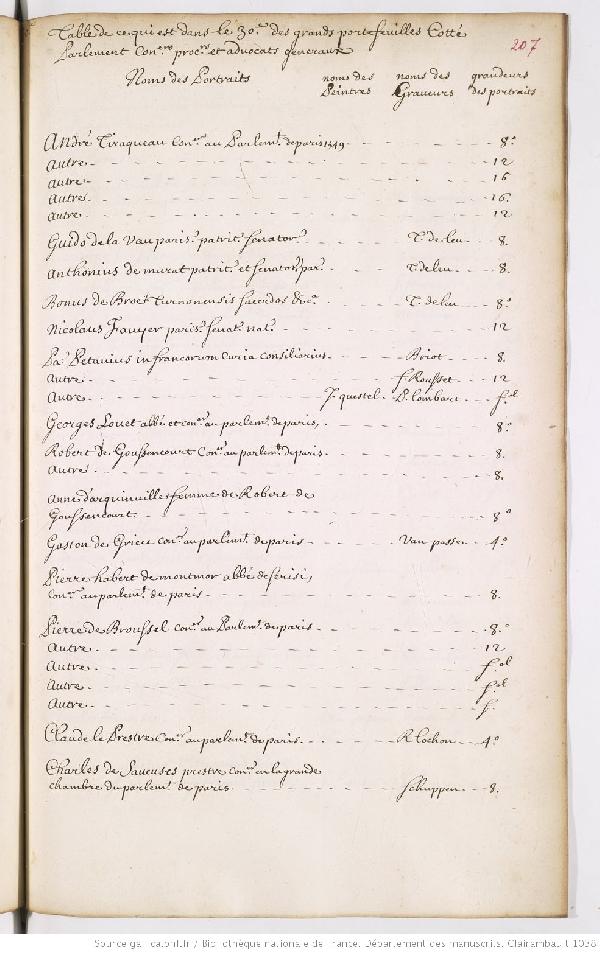 Table de ce qui est dans le 30.e des grands portefeuilles Cotté
Parlement Con.ers proc.rs et advocats generaux
207
Noms des Portraits noms des Peintres noms des Graveurs grandeurs des portraits
André Tiraqueau con.er au Parlem.t de paris 1549 - - - 8.o
Autre - - - 12
Autre - - - 16
Autre - - - 16.
Autre - - - 12
Guido de la Vau paris.s patric.s senator.s T. de leu - - 8.
Anthonius de murat patric.s et senator.s par.s T. de leu - - 8.
Bonus de Broe Turnonensis sacerdos T. de leu - - 8.o
Nicolaus paris.s senat.s nat.s - - - 12
Pa.s Petavius in francorum curia consiliarius - - Briot - - 8.
Autre - - - f. Rousset - - 12
Autre - - - J. questel - P. lombart - - f.ol
Georges Louet abbé et con.er au parlem.t de paris, - - - 8.o
Robert de Goussencourt Con.er au parlem.t de paris - - - 8.
Autre - - - 8.
Anne d'arquinuilles femme de Robert de
Goussencourt - - - 8.o
Gaston de Grieu con.er au parlem.t de paris - - - Van passen - - 4.o
Pierre habert de montmor abbé de serisi,
Con.er au parlem.t de paris - - - 8.
Pierre de Broussel con.er au Parlem.t de paris - - - 8.o
Autre - - - 12
Autre - - - f.ol
Autre - - - f.ol
Autre - - - f.
Claude le Prestre Con.er au parlem.t de paris - - - R. Lochon - - 4.o
Charles de Saueuses prestre con.er en la grande
chambre du parlem.t de paris - - - Schuppen - - 8.
Source gallica.bnf.fr / Bibliothèque nationale de France. Département des manuscrits. Clairambault 1038